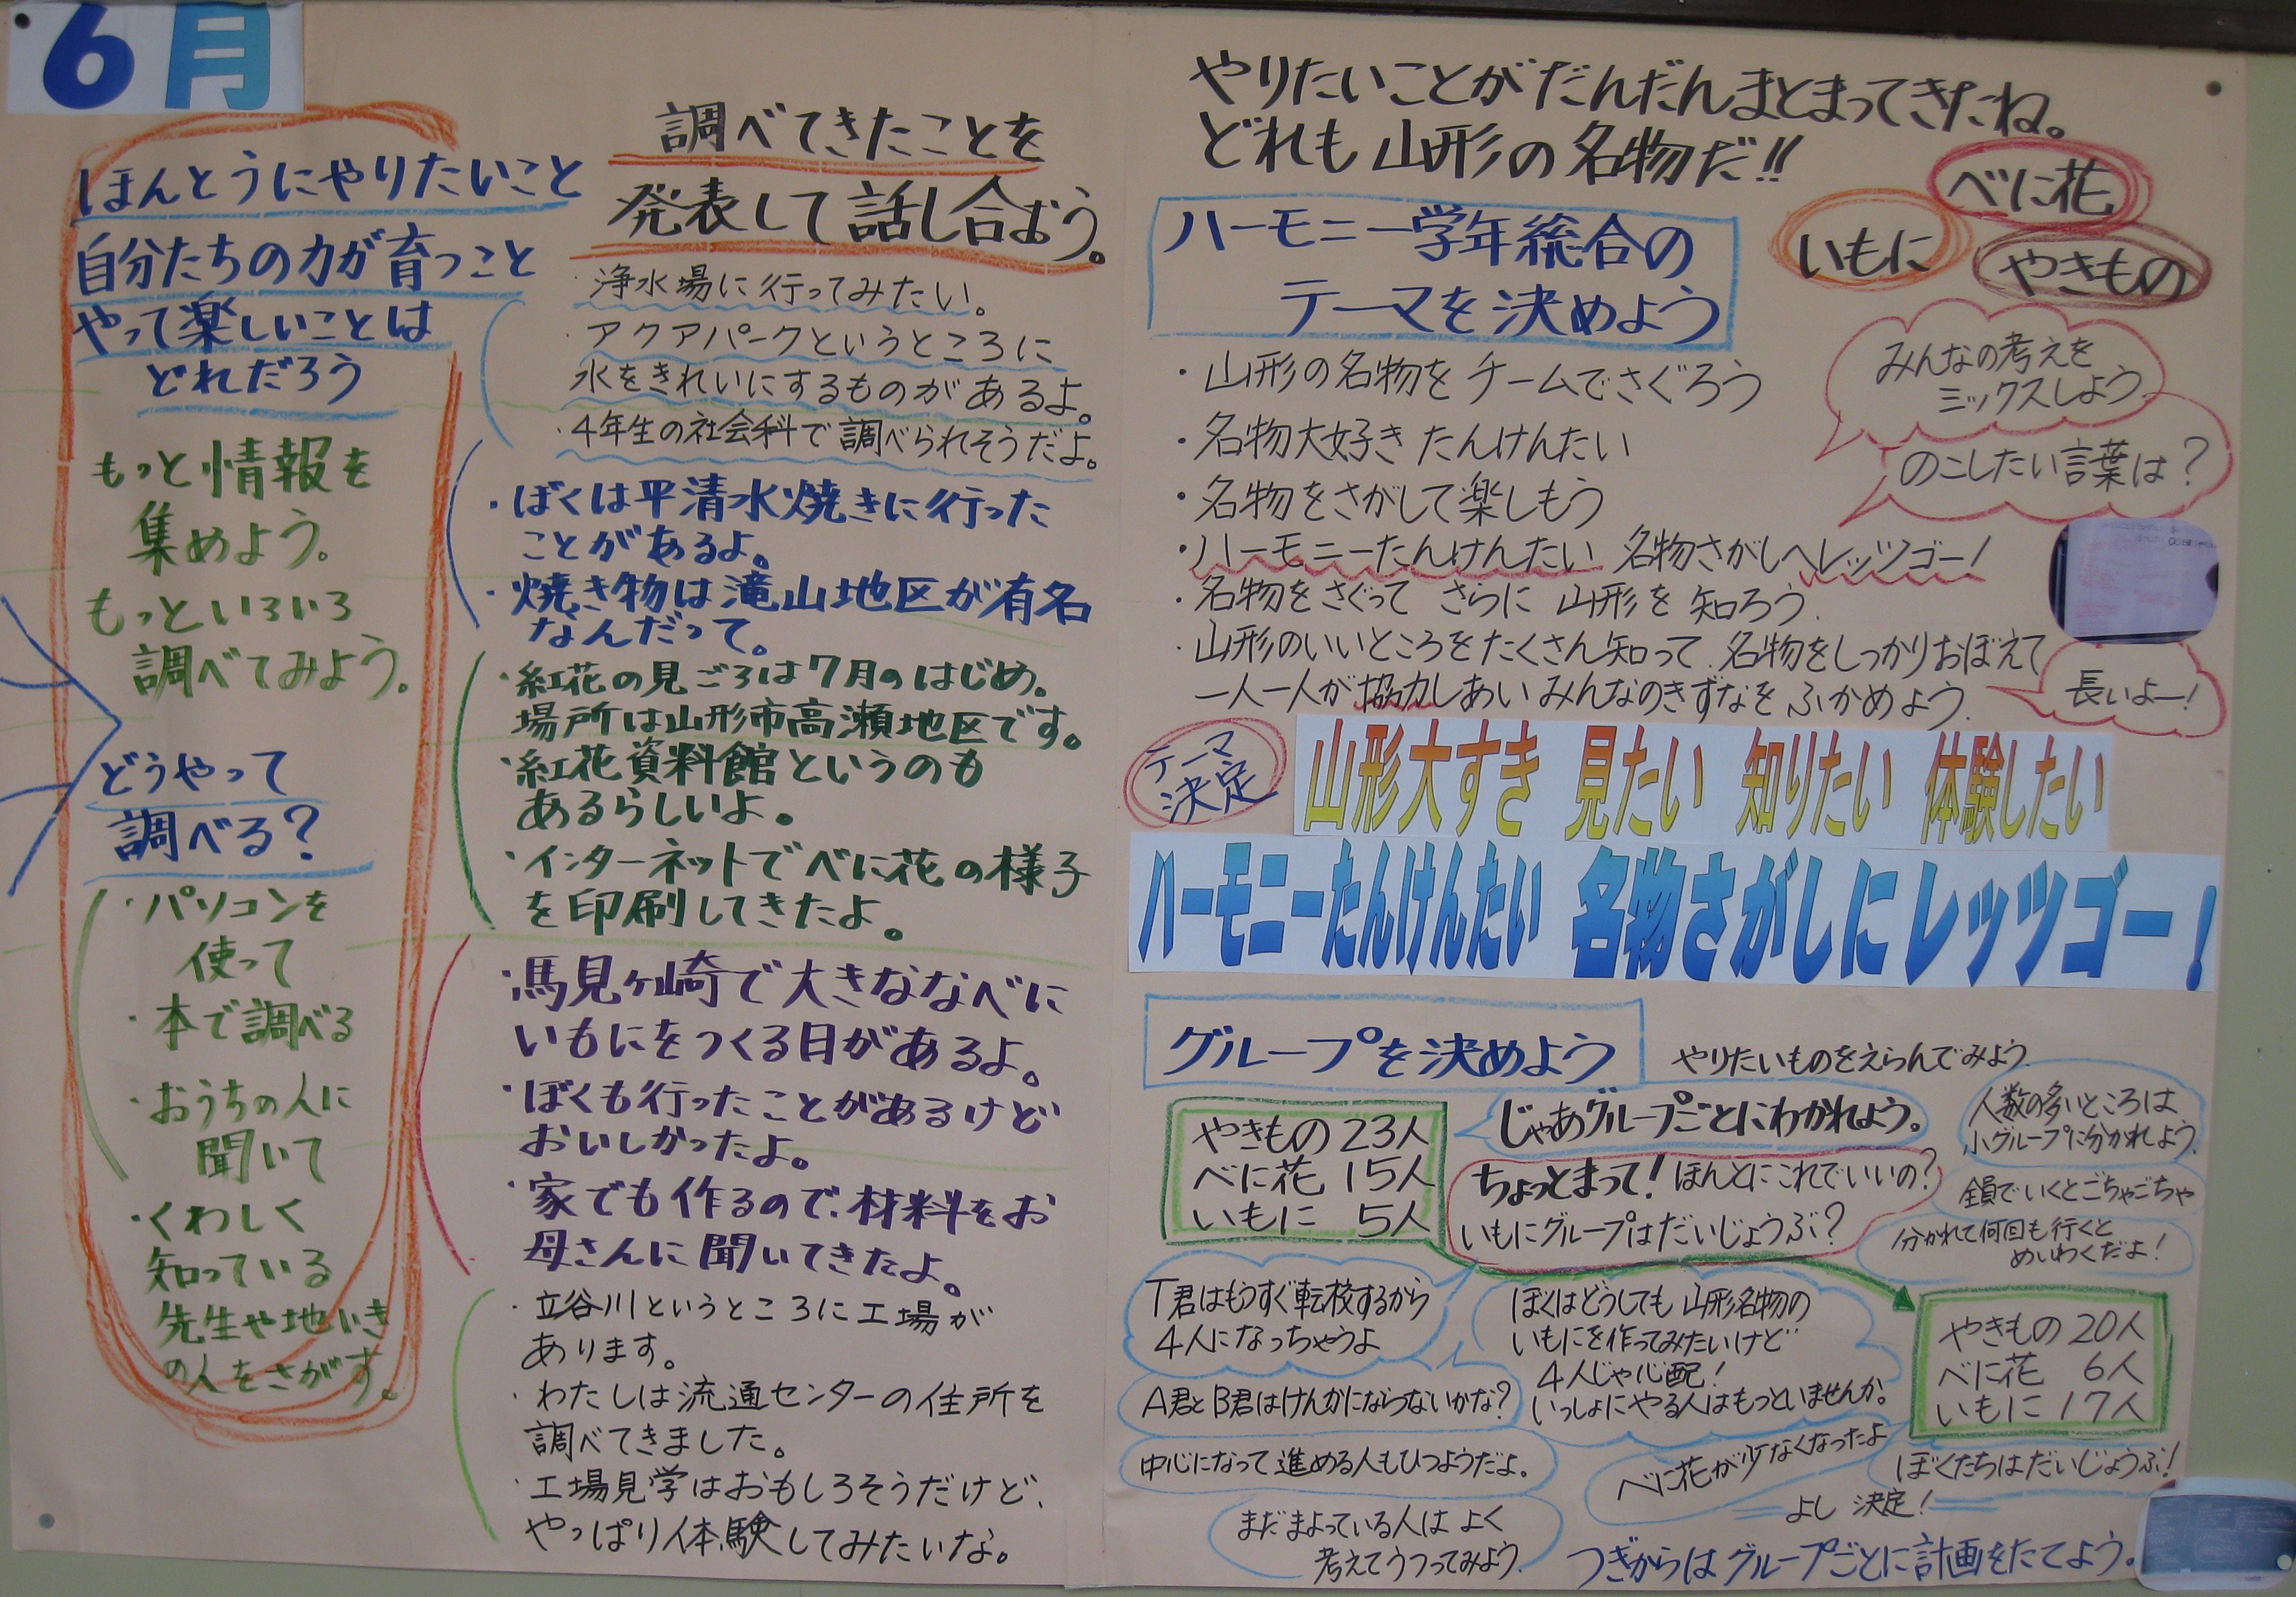 6月
ほんとうにやりたいこと
自分たちの力が育つこと
やって楽しいことは
どれだろう
もっと情報を
集めよう。
もっといろいろ
調べてみよう。
どうやって
調べる?
・パソコンを
使って
・本で調べる
・おうちの人に
聞いて
・くわしく
知っている
先生や地いき
の人をさがす。
調べてきたことを
発表して話し合おう。
・浄水場に行ってみたい。
・アクアパークというところに
水をきれいにするものがあるよ。
・4年生の社会科で調べられそうだよ。
・ぼくは平清水焼きに行った
ことがあるよ。
・焼き物は滝山地区が有名
なんだって。
・紅花の見ごろは7月のはじめ。
場所は山形市高瀬地区です。
・紅花資料館というのも
あるらしいよ。
・インターネットでべに花の様子
を印刷してきたよ。
・馬見ヶ崎で大きななべに
いもにをつくる日があるよ。
・ぼくも行ったことがあるけど
おいしかったよ。
・家でも作るので、材料をお
母さんに聞いてきたよ。
・立谷川というところに工場が
あります。
・わたしは流通センターの住所を
調べてきました。
・工場見学はおもしろそうだけど、
やっぱり体験してみたいな。
やりたいことがだんだんまとまってきたね。
どれも山形の名物だ!!
べに花
いもに
やきもの
ハーモニー学年総合の
テーマを決めよう
みんなの考えを
ミックスしよう
のこしたい言葉は?
・山形の名物をチームでさぐろう
・名物大好きたんけんたい
・名物をさがして楽しもう
・ハーモニーたんけんたい 名物さがしへレッツゴー!
・名物をさぐって さらに 山形を 知ろう.
・山形のいいところをたくさん知って、名物をしっかりおぼえて
一人一人が協力しあいみんなのきずなをふかめよう.
長いよー!
テーマ
決定
山形大すき 見たい 知りたい 体験したい
ハーモニーたんけんたい 名物さがしにレッツゴー!
グループを決めよう
やりたいものをえらんでみよう.
やきもの 23人
べに花 15人
いもに 5人
じゃあグループごとにわかれよう。
人数の多いところは
小グループに分かれよう.
ちょっとまって!ほんとにこれでいいの?
いもにグループはだいじょうぶ?
全員でいくとごちゃごちゃ
分かれて何回も行くと
めいわくだよ!
T君はもうすぐ転校するから
4人になっちゃうよ
ぼくはどうしても山形名物の
いもにを作ってみたいけど
4人じゃ心配!
いっしょにやる人はもっといませんか。
やきもの 20人
べに花 6人
いもに 17人
A君とB君はけんかにならないかな?
中心になって進める人もひつようだよ。
べに花が少なくなったよ
ぼくたちはだいじょうぶ!
よし 決定!
まだまよっている人は よく
考えてうつってみよう.
つぎからはグループごとに計画をたてよう。